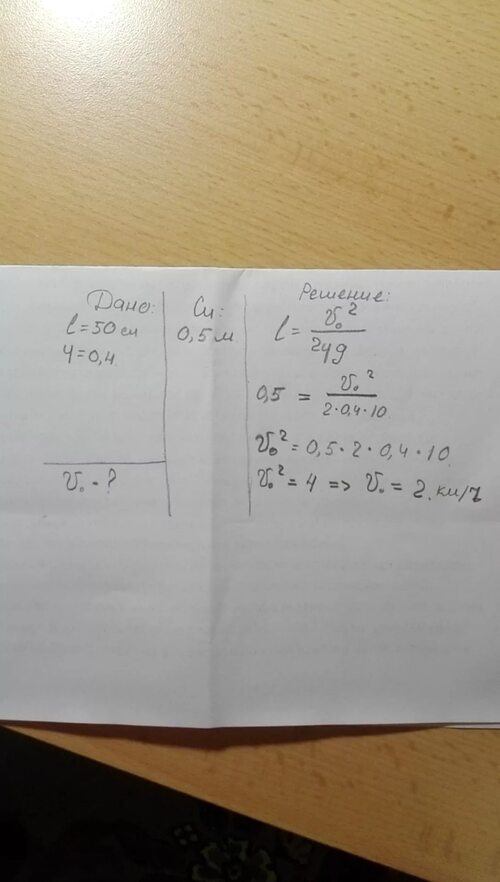 Дано:
l = 50 см
Ч = 0,4
V₀ - ?
Си:
0,5 м
Решение:
l = V₀² / 2чg
0,5 = V₀² / 2·0,4·10
V₀² = 0,5·2·0,4·10
V₀² = 4 => V₀ = 2 км/ч